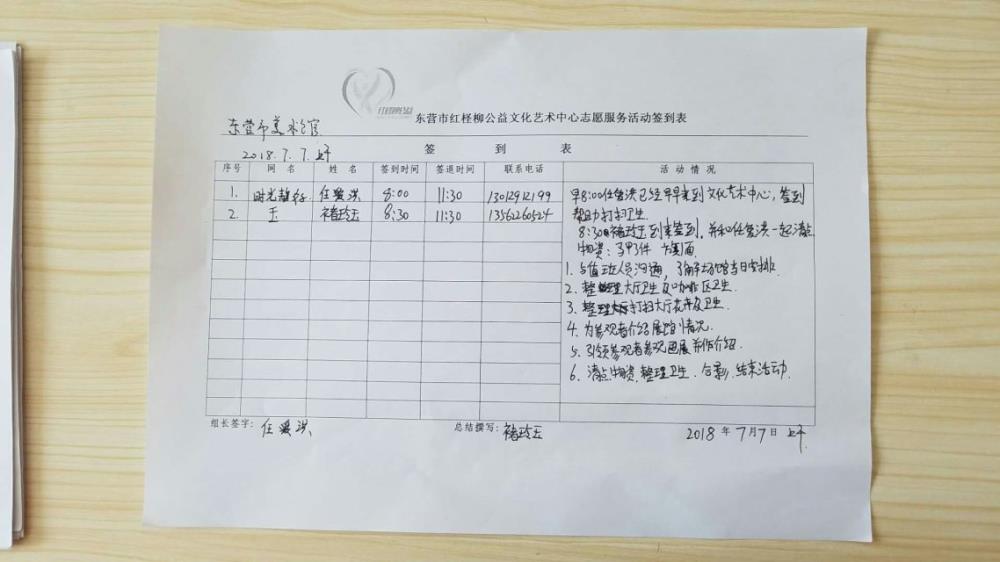 红柽柳公益
东营市红柽柳公益文化艺术中心志愿服务活动签到表
东营市美术馆
2018.7.7.上午
签 到 表
序号 网 名 姓 名 签到时间 签退时间 联系电话 活 动 情 况
1. 时光静好 任爱洪 8:00 11:30 13012912199
2. 玉 褚玲玉 8:30 11:30 13562260524
早8:00任爱洪已经早早来到文化艺术中心,签到
帮助打扫卫生.
8:30褚玲玉到来签到,并和任爱洪一起清点
物资:马甲 件
1. 与值班人员沟通,了解场馆当日安排
2. 整理大厅卫生及咖啡区卫生.
3. 打扫大厅花卉及卫生.
4. 为参观者介绍展馆情况.
5. 引领参观者参观画展并作介绍.
6. 清点物资.整理卫生.合影.结束活动.
组长签字: 任爱洪 总结撰写: 褚玲玉 2018 年 7月7 日 上午